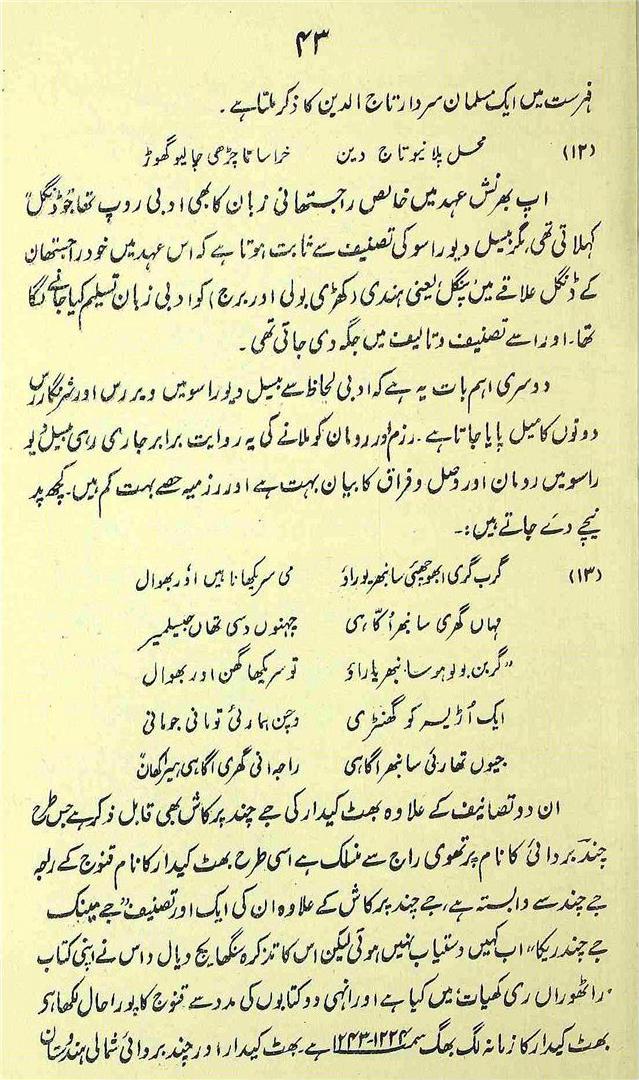 ۴۳
فہرست میں ایک مسلمان سردار تاج الدین کا ذکر ملتا ہے۔
(۱۲) محل پلانیو تاج دین خراسانا چڑھی چالیو گھوڑ
اپ بھرنش عہد میں خالص راجستھانی زبان کا بھی ادبی روپ تھا جو "ڈنگل"
کہلاتی تھی، مگر بیسل دیو راسو کی تصنیف سے ثابت ہوتا ہے کہ اس عہد میں خود راجستھان
کے ڈنگل علاقے میں پنگل یعنی ہندی (کھڑی بولی اور برج) کو ادبی زبان تسلیم کیا جانے لگا
تھا۔ اور اسے تصنیف و تالیف میں جگہ دی جاتی تھی۔
دوسری اہم بات یہ ہے کہ ادبی لحاظ سے بیسل دیو راسو میں ویر رس اور شرنگار رس
دونوں کا میل پایا جاتا ہے۔ رزم اور رومان کو ملانے کی یہ روایت برابر جاری رہی بیسل دیو
راسو میں رومان اور وصل و فراق کا بیان بہت ہے اور رزمیہ حصے بہت کم ہیں۔ کچھ پد
نیچے دئے جاتے ہیں:۔
(۱۳) گرب گری ابھو چھئی سانبھریو راؤ می سریکھا ناہیں اؤر بھوال
مہاں گھری سانبھر اُگاہی چہنوں دسی تھاں جیسلمیر
"گربن بولو ہو سانبھریا راؤ تو سریکھا گھن اور بھوال
ایک اُڑیسہ کو گھنٹری وچن ہمارئی تو مانی جو مانی
جیوں تھارئی سانبھر اگاہی راجہ انی گھری اگاہی ہیرا کھان"
ان دو تصانیف کے علاوہ بھٹ کیدار کی جے چند پرکاش بھی قابل ذکر ہے جس طرح
چندبردائی کا نام پرتھوی راج سے منسلک ہے اسی طرح بھٹ کیدار کا نام قنوج کے راجہ
جے چند سے وابستہ ہے، جے چند پرکاش کے علاوہ ان کی ایک اور تصنیف "جے مینک
جے چندریکا" اب کہیں دستیاب نہیں ہوئی لیکن اس کا تذکرہ سنگھایچ دیال داس نے اپنی کتاب
'راٹھوراں ری کھیات' میں کیا ہے اور انہی دو کتابوں کی مدد سے قنوج کا پورا حال لکھا ہے
بھٹ کیدار کا زمانہ لگ بھگ سمت ۱۲۲۴-۱۲۴۳ ہے۔ بھٹ کیدار اور چندبردائی شمالی ہندوستان